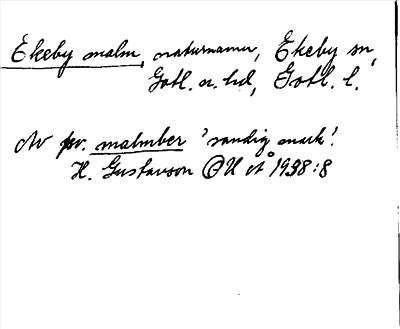 Ekeby malm, naturnamn, Ekeby sn,
Gotl. n. hd, Gotl. l.
Av malmber 'sandig mark'.
H. Gustavson OU å 1938:8